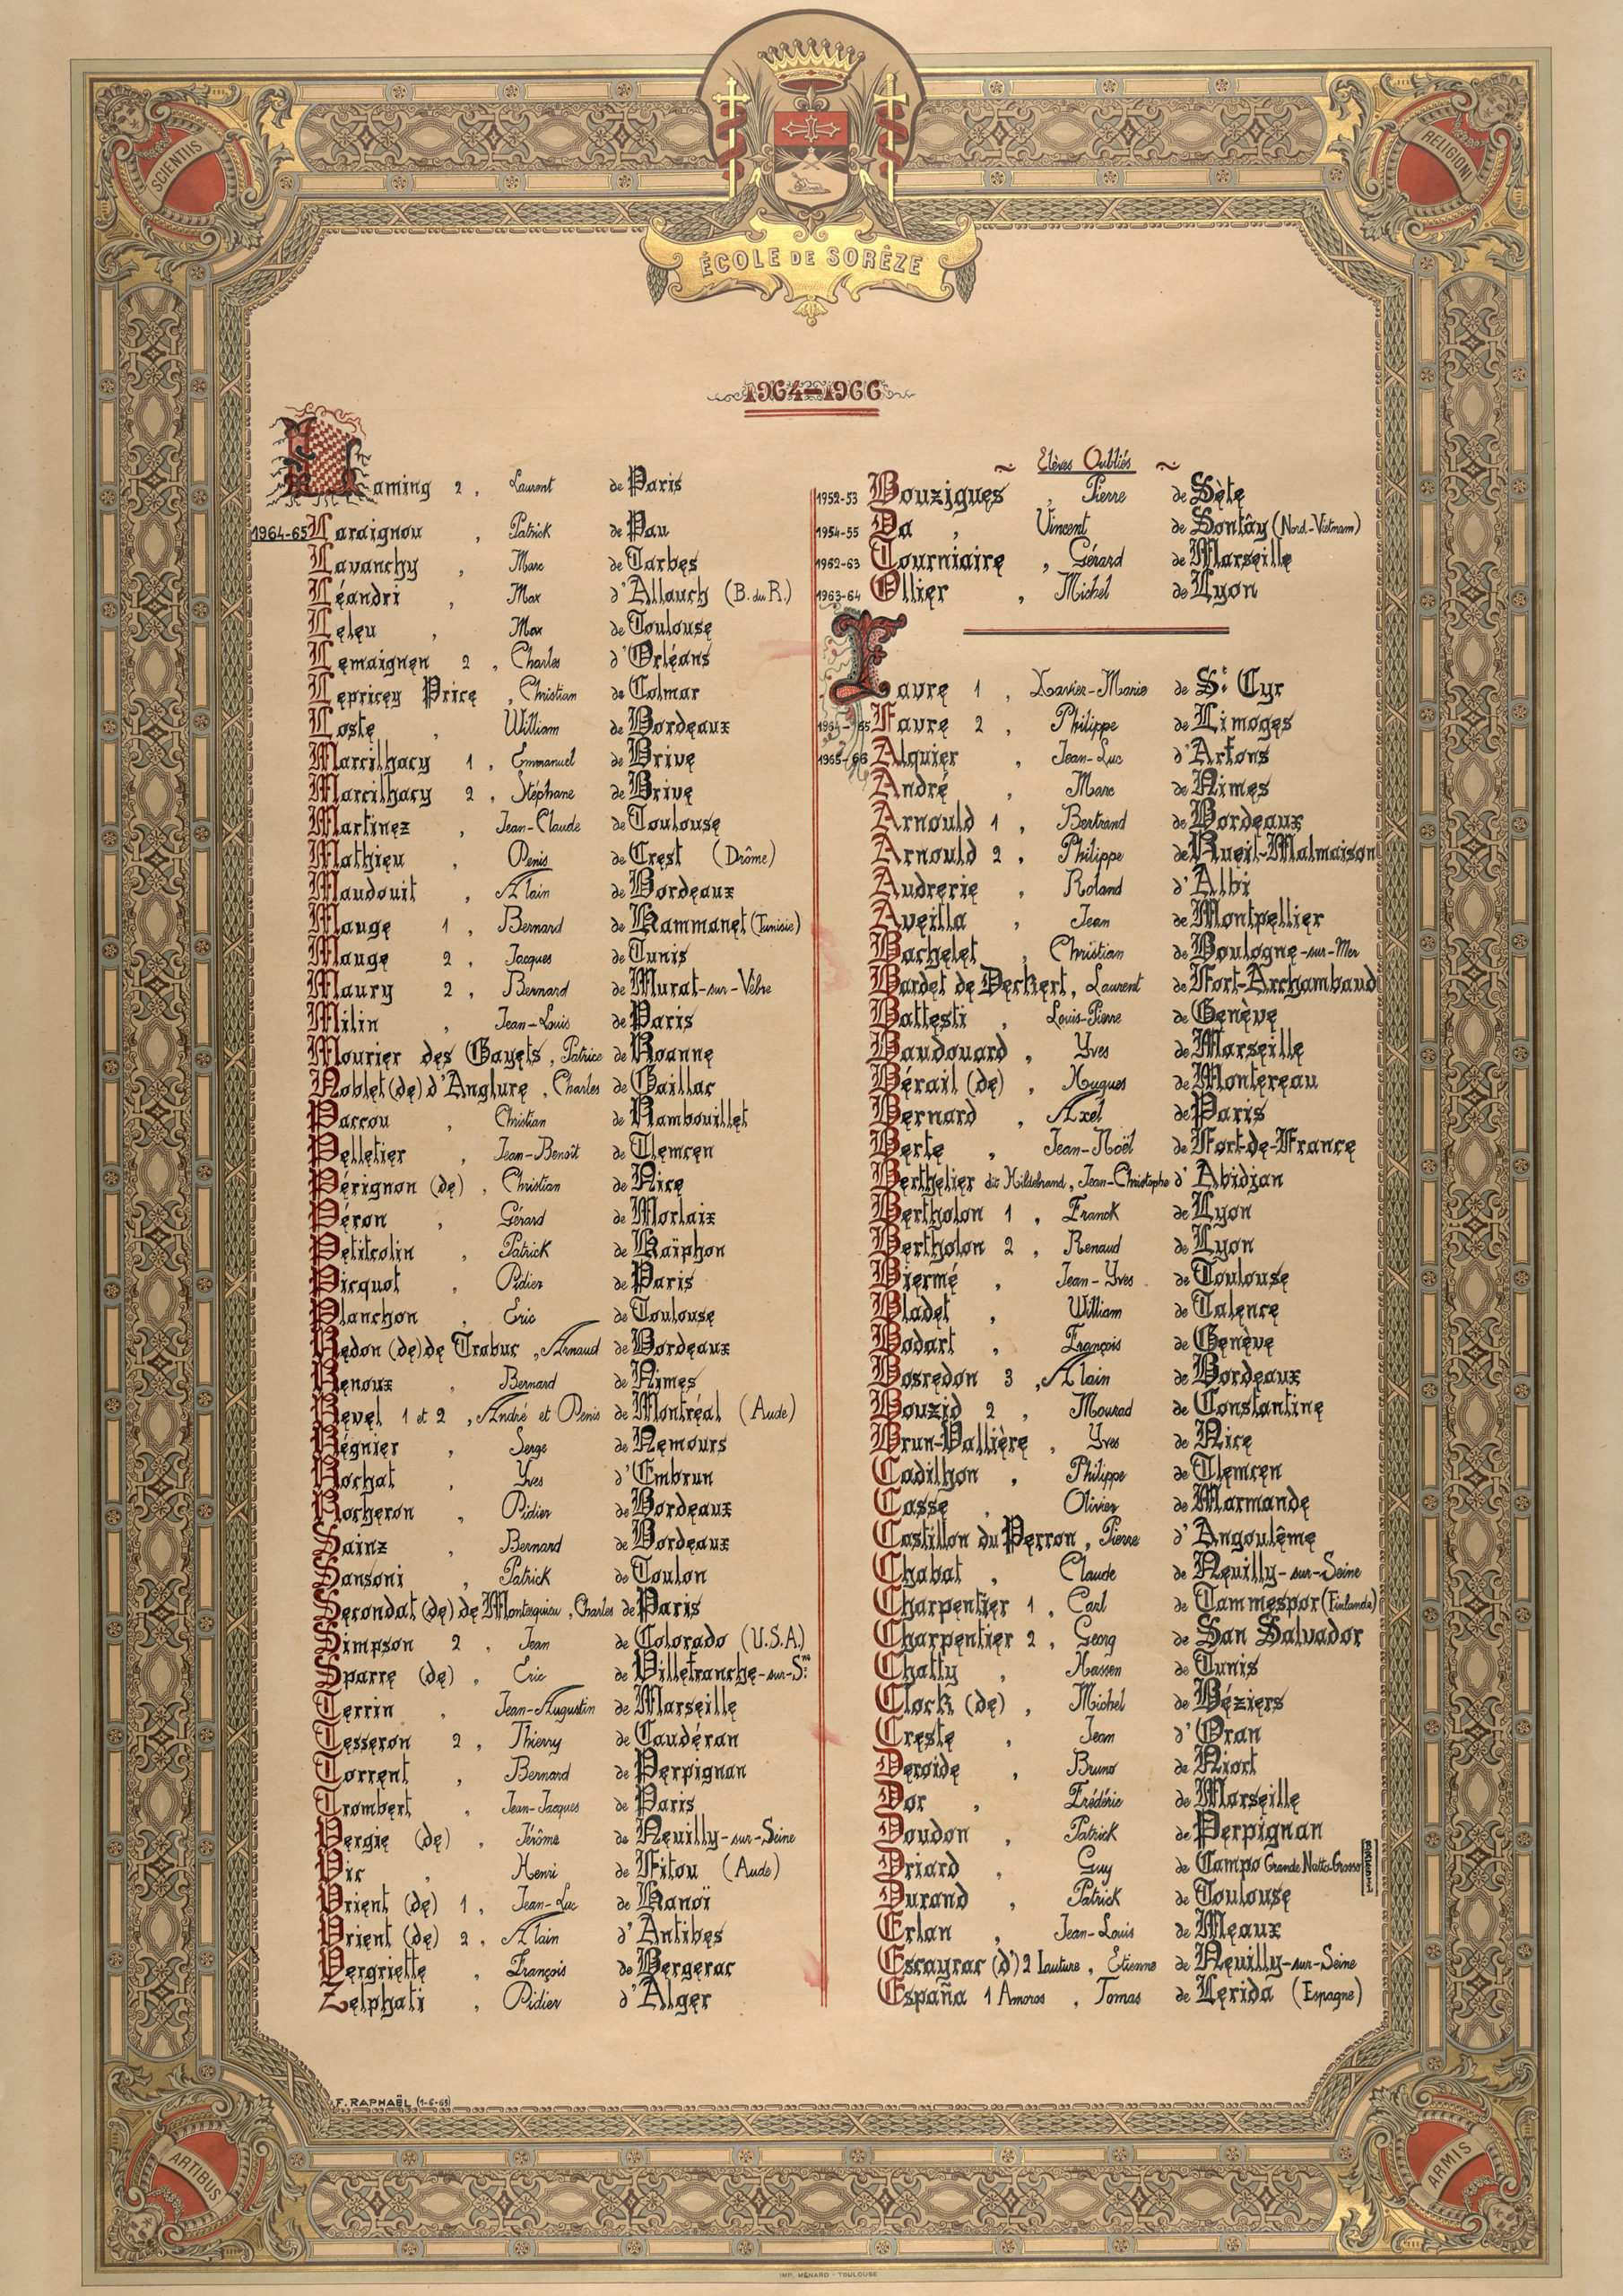 SCIENTIIS
RELIGIONI
ÉCOLE DE SORÈZE
1964-1966
Laming 2, Laurent de Paris
1964-65 Laraignou, Patrick de Pau
Lavanchy, Marc de Tarbes
Léandri, Max d'Allauch (B.du R.)
Leleu, Max de Toulouse
Lemaignen 2, Charles d'Orléans
Lepricey Price, Christian de Colmar
Loste, William de Bordeaux
Marcilhacy 1, Emmanuel de Brive
Marcilhacy 2, Stéphane de Brive
Martinez, Jean-Claude de Toulouse
Mathieu, Denis de Crest (Drôme)
Maudouit, Alain de Bordeaux
Mauge 1, Bernard de Hammamet (Tunisie)
Mauge 2, Jacques de Tunis
Maury 2, Bernard de Murat-sur-Vèbre
Milin, Jean-Louis de Paris
Mourier des Gayets, Patrice de Roanne
Noblet (de) d'Anglure, Charles de Gaillac
Parrou, Christian de Rambouillet
Pelletier, Jean-Benoît de Tlemcen
Pérignon (de), Christian de Nice
Péron, Gérard de Morlaix
Petitcolin, Patrick de Haïphon
Picquot, Didier de Paris
Planchon, Eric de Toulouse
Redon (de) de Trobuc, Arnaud de Bordeaux
Renoux, Bernard de Nimes
Revel 1 et 2, André et Denis de Montréal (Aude)
Régnier, Serge de Nemours
Rochat, Yves d'Embrun
Rocheron, Didier de Bordeaux
Sainz, Bernard de Bordeaux
Sansoni, Patrick de Toulon
Secondat (de) de Montesquieu, Charles de Paris
Simpson 2, Jean de Colorado (U.S.A.)
Sparre (de), Eric de Villefranche-sur-Sne
Terrin, Jean-Augustin de Marseille
Tesseron 2, Thierry de Caudéran
Torrent, Bernard de Perpignan
Trombert, Jean-Jacques de Paris
Vergie (de), Jérôme de Neuilly-sur-Seine
Vic, Henri de Fitou (Aude)
Vrient (de) 1, Jean-Luc de Hanoï
Vrient (de) 2, Alain d'Antibes
Vergriette, François de Bergerac
Zelphati, Didier d'Alger
F. RAPHAËL (1-6-65)
~ Elèves Oubliés ~
1952-53 Bouzigues, Pierre de Sète
1954-55 Da, Vincent de Sontây (Nord-Vietnam)
1962-63 Tourniaire, Gérard de Marseille
1963-64 Ollier, Michel de Lyon
Favre 1, Xavier-Marie de St Cyr
1964-65 Favre 2, Philippe de Limoges
1965-66 Alquier, Jean-Luc d'Arfons
André, Marc de Nimes
Arnould 1, Bertrand de Bordeaux
Arnould 2, Philippe de Rueil-Malmaison
Audrerie, Roland d'Albi
Aveilla, Jean de Montpellier
Bachelet, Christian de Boulogne-sur-Mer
Bardet de Deckert, Laurent de Fort-Archambaud
Battesti, Louis-Pierre de Genève
Baudouard, Yves de Marseille
Bérail (de), Hugues de Montereau
Bernard, Axel de Paris
Berte, Jean-Noël de Fort-de-France
Berthelier dit Hildebrand, Jean-Christophe d'Abidjan
Bertholon 1, Franck de Lyon
Bertholon 2, Renaud de Lyon
Biermé, Jean-Yves de Toulouse
Bladet, William de Talence
Bodart, François de Genève
Bosredon 3, Alain de Bordeaux
Bouzid 2, Mourad de Constantine
Brun-Vallière, Yves de Nice
Cadilhon, Philippe de Tlemcen
Casse, Olivier de Marmande
Castillon du Perron, Pierre d'Angoulême
Chabat, Claude de Neuilly-sur-Seine
Charpentier 1, Carl de Tammespor (Finlande)
Charpentier 2, Georg de San Salvador
Chatty, Hassen de Tunis
Clock (de), Michel de Béziers
Creste, Jean d'Oran
Deroide, Bruno de Niort
Dor, Frédéric de Marseille
Doudon, Patrick de Perpignan
Driard, Guy de Campo Grande Natto Grosso
Durand, Patrick de Toulouse
Erlan, Jean-Louis de Meaux
Escayrac (d') 2 Lauture, Etienne de Neuilly-sur-Seine
España 1 Amoros, Tomas de Lerida (Espagne)
ARTIBUS
ARMIS
IMP. MÉNARD - TOULOUSE